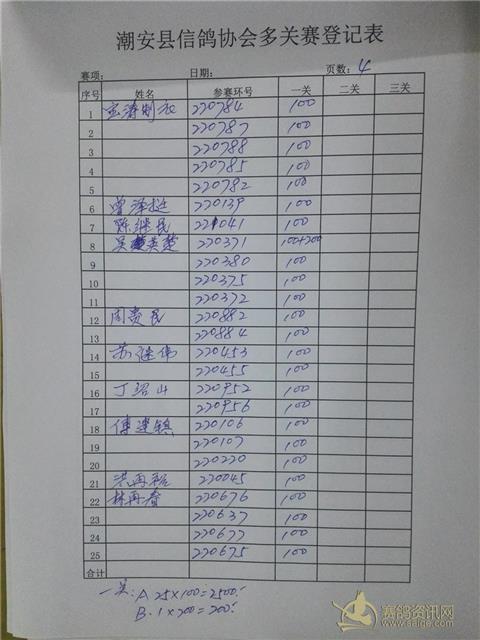 潮安县信鸽协会多关赛登记表
赛项: 日期: 页数: 4
序号 姓名 参赛环号 一关 二关 三关
1 宝涛制衣 220784 100
2 220787 100
3 220788 100
4 220785 100
5 220782 100
6 曾泽挺 220139 100
7 陈继民 221041 100
8 吴英楚 220371 100+200
9 220380 100
10 220375 100
11 220372 100
12 周贵民 220882 100
13 220884 100
14 苏继伟 220453 100
15 220455 100
16 丁绍山 220952 100
17 220956 100
18 傅建镇 220106 100
19 220107 100
20 220220 100
21 洪再 220045 100
22 林再春 220676 100
23 220637 100
24 220677 100
25 220675 100
合计
一关: A 25×100=2500.
B. 1×200=200.
赛鸽资讯网
www.saige.com